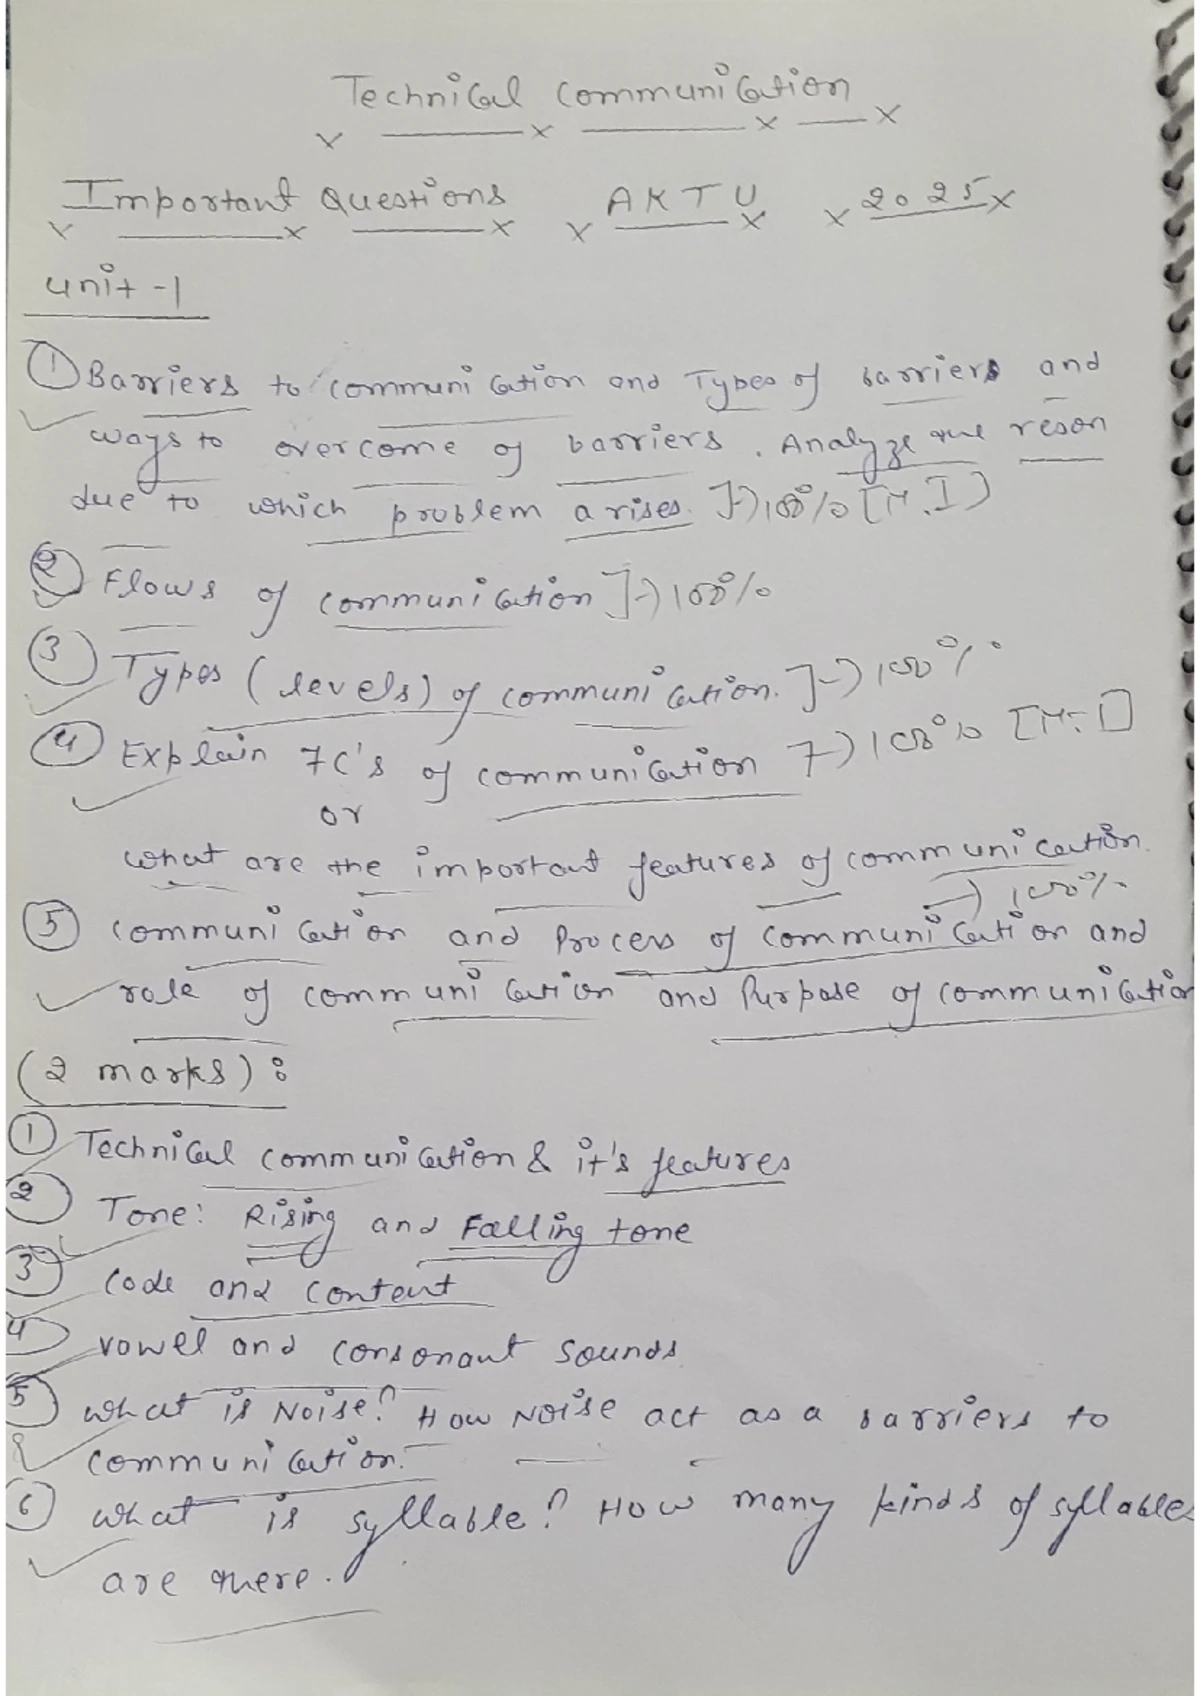 Technical Communication
Important Questions AKTU 2025
Unit -1
① Barriers to communication and Types of barriers and
ways to overcome of barriers. Analyze the reson
due to which problem arises. ]→100% [M.I]
② Flows of communication ]→100%
③ Types (levels) of communication. ]→100%
④ Explain 7C's of communication 7→100% [M.I]
or
what are the important features of communication.
→100%
⑤ communication and Process of communication and
role of communication and Purpose of communication
(2 marks):
① Technical communication & it's features
② Tone: Rising and Falling tone
③ code and content
④ vowel and consonant sounds
⑤ what is Noise? How Noise act as a barriers to
communication.
⑥ what is syllable? How many kinds of syllables
are there.